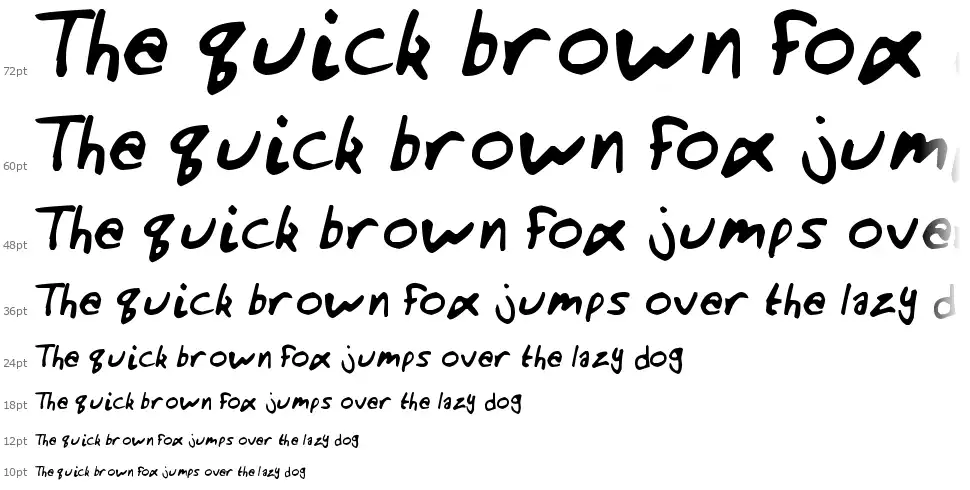 72pt The quick brown fox
60pt The quick brown fox jum
48pt The quick brown fox jumps ove
36pt The quick brown fox jumps over the lazy d
24pt The quick brown fox jumps over the lazy dog
18pt The quick brown fox jumps over the lazy dog
12pt The quick brown fox jumps over the lazy dog
10pt The quick brown fox jumps over the lazy dog